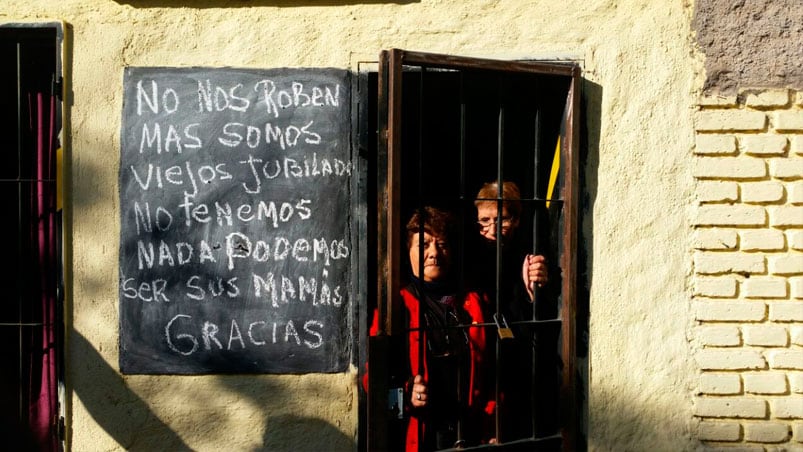 No Nos RobeN
MAS SOMOS
Viejos Jubilado
No teNemos
NADA Podemos
Ser Sus Mamás
Gracias